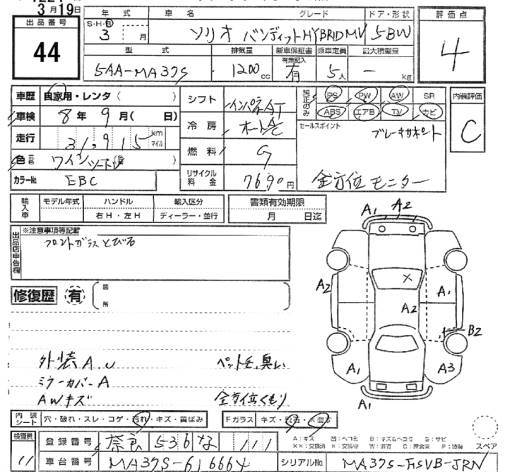 3月19日
出品番号 年式 車名 グレード ドア・形状 評価点
44
S・H・R 3 月 ソリオ バンディット HYBRID MV 5BW
4
型式 排気量 新車保証書 乗車定員 最大積載量
5AA-MA37S 1200cc 有 5人 ー kg
車歴 自家用・レンタ( ) シフト インパネAT PS PW AW SR 内装評価
車検 8年9月( 日) ABS エアB TV ナビ
C
冷房 オートAC セールスポイント ブレーキサポート
走行 31,915 km マイル
燃料 G
色 ワインレッド
リサイクル料金 7690円 全方位モニター
カラーNo EBC
輸入車 モデル年式 ハンドル 輸入区分 書類有効期限
右H・左H ディーラー・並行 月 日迄
出品店申告欄 ※注意事項等記載
フロントガラスとびる
A1 A2
A1
修復歴 有 箇所
A2 A2 A1
B2
外装A、U ペット毛、臭い
ミラーカバーA
A1 A3
AWキズ 全方位くもり
A1
内装シート 穴・破れ・スレ・コゲ・汚れ・キズ・歯ばみ Fガラス キズ
スペア
11 登録番号 奈良 536 な 111
車台番号 MA37S-616664 シリアルNo MA37S-FSVB-JRN